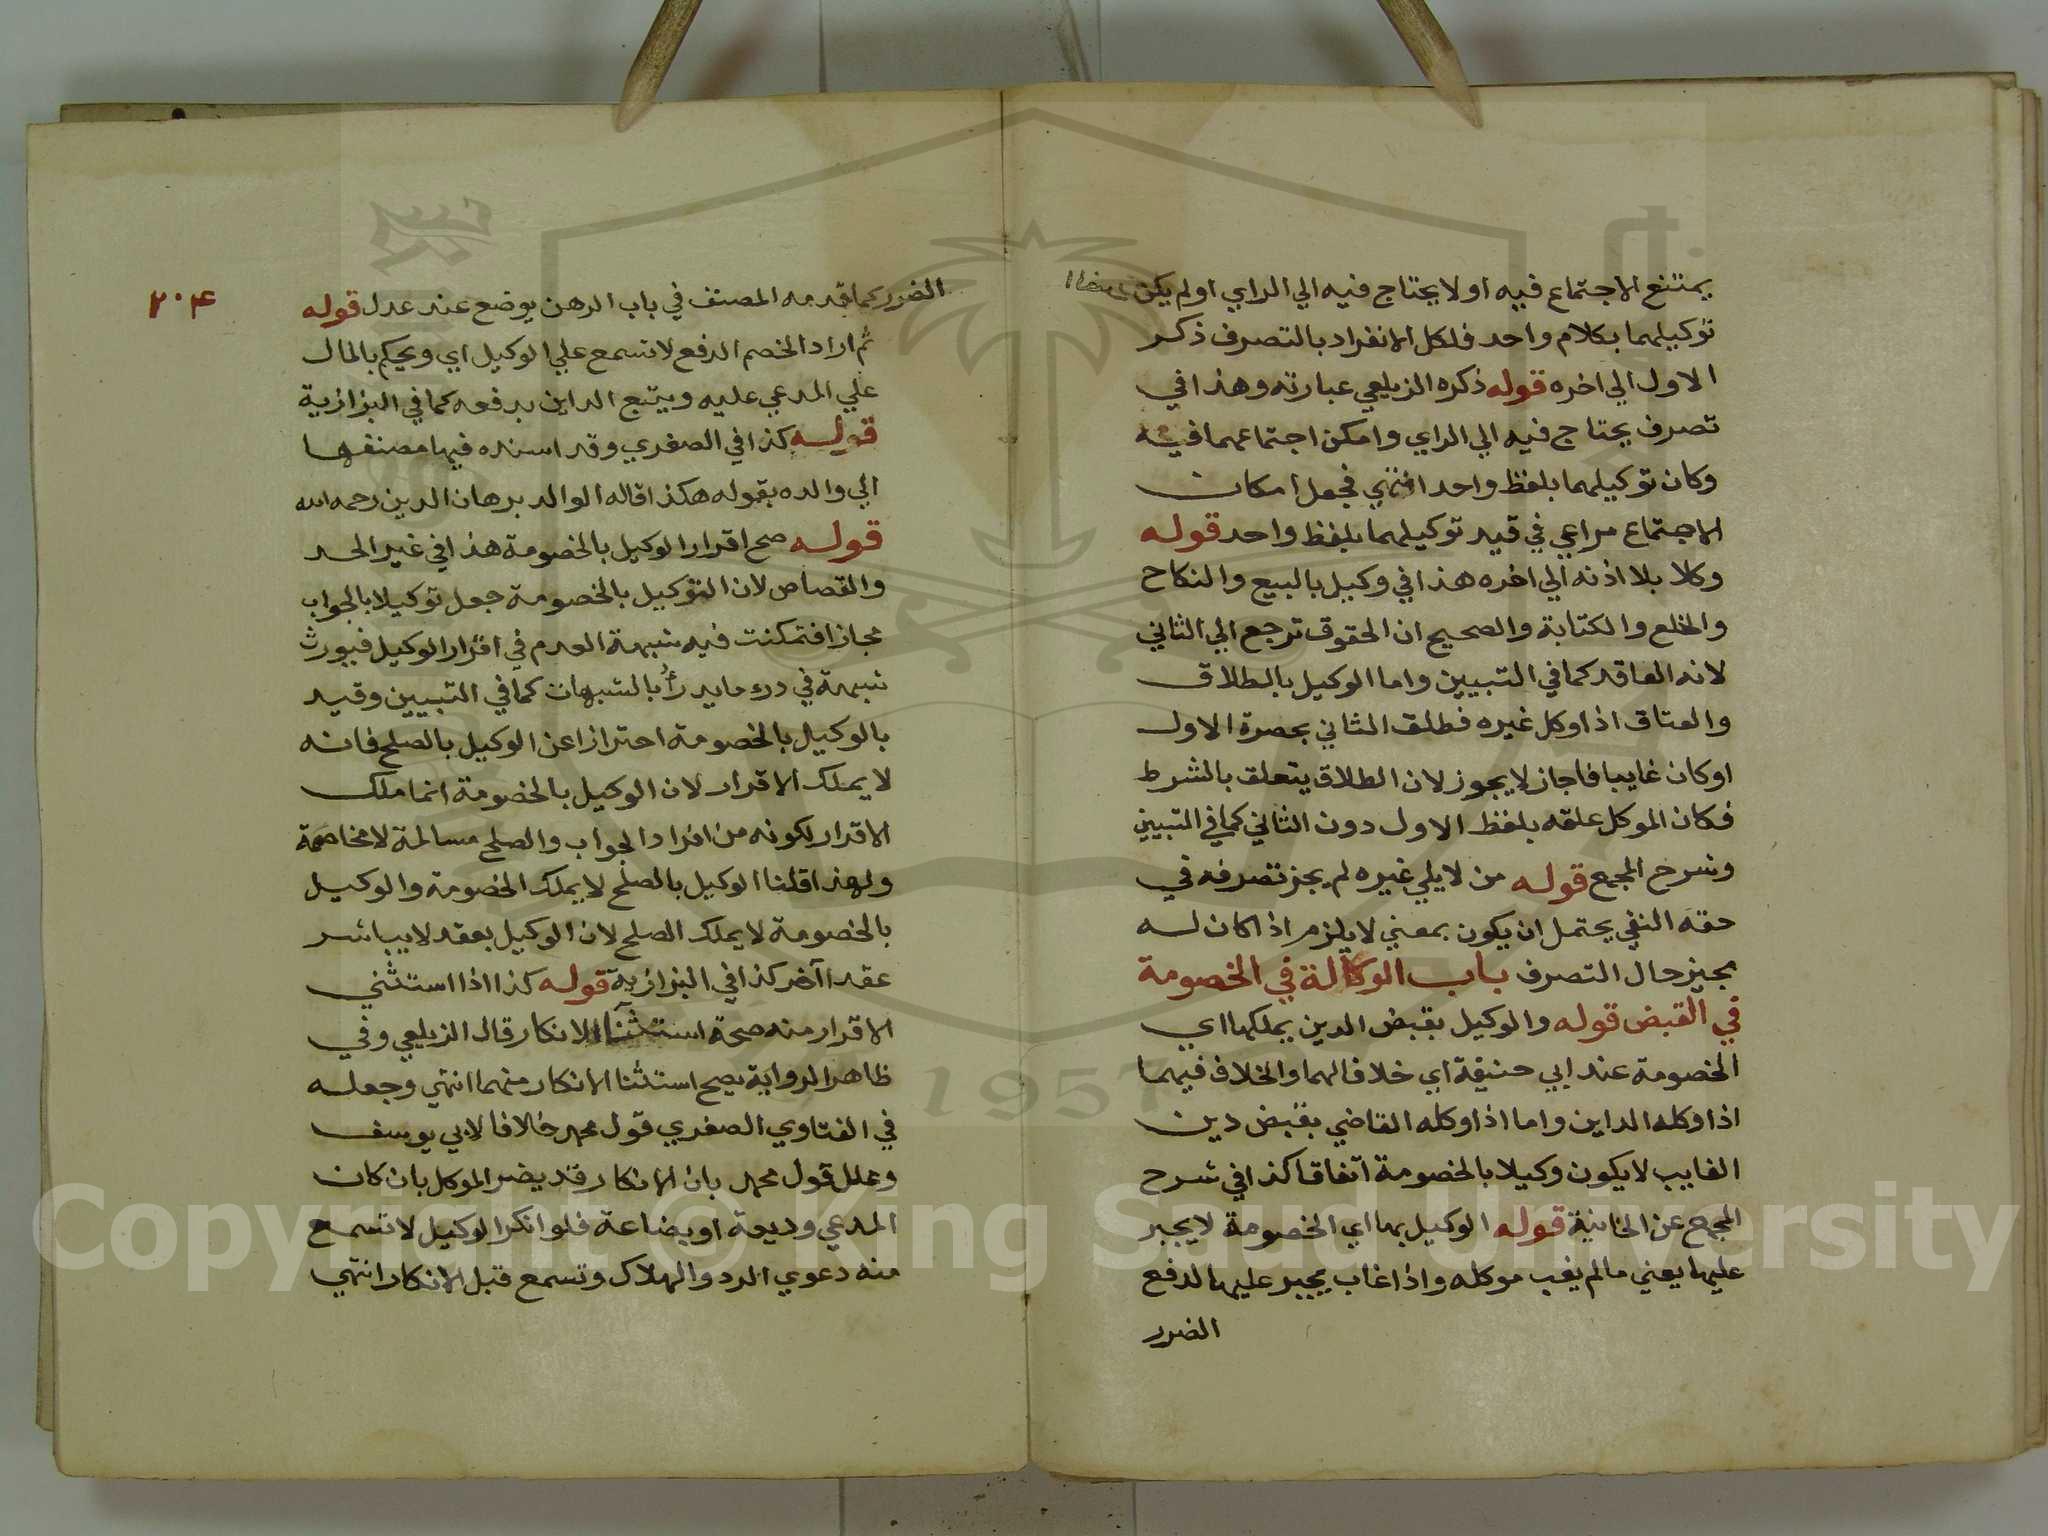 يمتنع الاجتماع فيه او لا يحتاج فيه الي الراي او لم يكن
توكيلهما بكلام واحد فلكل الانفراد بالتصرف ذكر
الاول الي اخره قوله ذكره الزيلعي عبارته وهذا في
تصرف يحتاج فيه الي الراي وامكن اجتماعهما فيه
وكان توكيلهما بلفظ واحد انتهي فجعل امكان
الاجتماع مراعي في قيد توكيلهما بلفظ واحد قوله
وكلا بلا اذنه الي اخره هذا في وكيل بالبيع والنكاح
والخلع والكتابة والصحيح ان الحقوق ترجع الي الثاني
لانه العاقد كما في التبيين واما الوكيل بالطلاق
والعتاق اذا وكل غيره فطلق الثاني بحضرة الاول
او كان غايبا فاجاز لا يجوز لان الطلاق يتعلق بالشرط
فكان الموكل علقه بلفظ الاول دون الثاني كما في التبيين
وشرح المجمع قوله من لا يلي غيره لم يجز تصرفه في
حقه النفي يحتمل ان يكون بمعني لا يلزم اذا كان له
مجيز حال التصرف باب الوكالة في الخصومة
في القبض قوله والوكيل بقبض الدين يملكها اي
الخصومة عند ابي حنيفة اي خلافا لهما والخلاف فيهما
اذا وكله الداين واما اذا وكله القاضي بقبض دين
الغايب لا يكون وكيلا بالخصومة اتفاقا كذا في شرح
المجمع عن الخانية قوله الوكيل بها اي الخصومة لا يجبر
عليها يعني ما لم يغب موكله واذا غاب يجبر عليها لدفع
الضرر
٢٠٤
الضرر كما قدمه المصنف في باب الرهن يوضع عند عدل قوله
ثم اراد الخصم الدفع لا تسمع علي الوكيل اي ويحكم بالمال
علي المدعي عليه ويتبع الداين بدفعه كما في البزازية
قوله كذا في الصغري وقد اسنده فيها مصنفها
الي والده بقوله هكذا قاله الوالد برهان الدين رحمه الله
قوله صح اقرار الوكيل بالخصومة هذا في غير الحد
والقصاص لان التوكيل بالخصومة جعل توكيلا بالجواب
مجازا فتمكنت فيه شبهة العدم في اقرار الوكيل فيورث
شبهة في درء ما يدرأ بالشبهات كما في التبيين وقيد
بالوكيل بالخصومة احترازا عن الوكيل بالصلح فانه
لا يملك الاقرار لان الوكيل بالخصومة انما ملك
الاقرار لكونه من افراد الجواب والصلح مسالمة لا مخاصمة
ولهذا قلنا الوكيل بالصلح لا يملك الخصومة والوكيل
بالخصومة لا يملك الصلح لان الوكيل بعقد لا يباشر
عقدا آخر كذا في البزازية قوله كذا اذا استثني
الاقرار منه صحة استثناء الانكار قال الزيلعي وفي
ظاهر الرواية يصح استثنا الانكار منهما انتهي وجعله
في الفتاوي الصغري قول محمد خلافا لابي يوسف
وعلل قول محمد بان الانكار قد يضر الموكل بان كان
المدعي وديعة او بضاعة فلو انكر الوكيل لا تسمع
منه دعوي الرد والهلاك وتسمع قبل الانكار انتهي
1957
Copyright © King Saud University